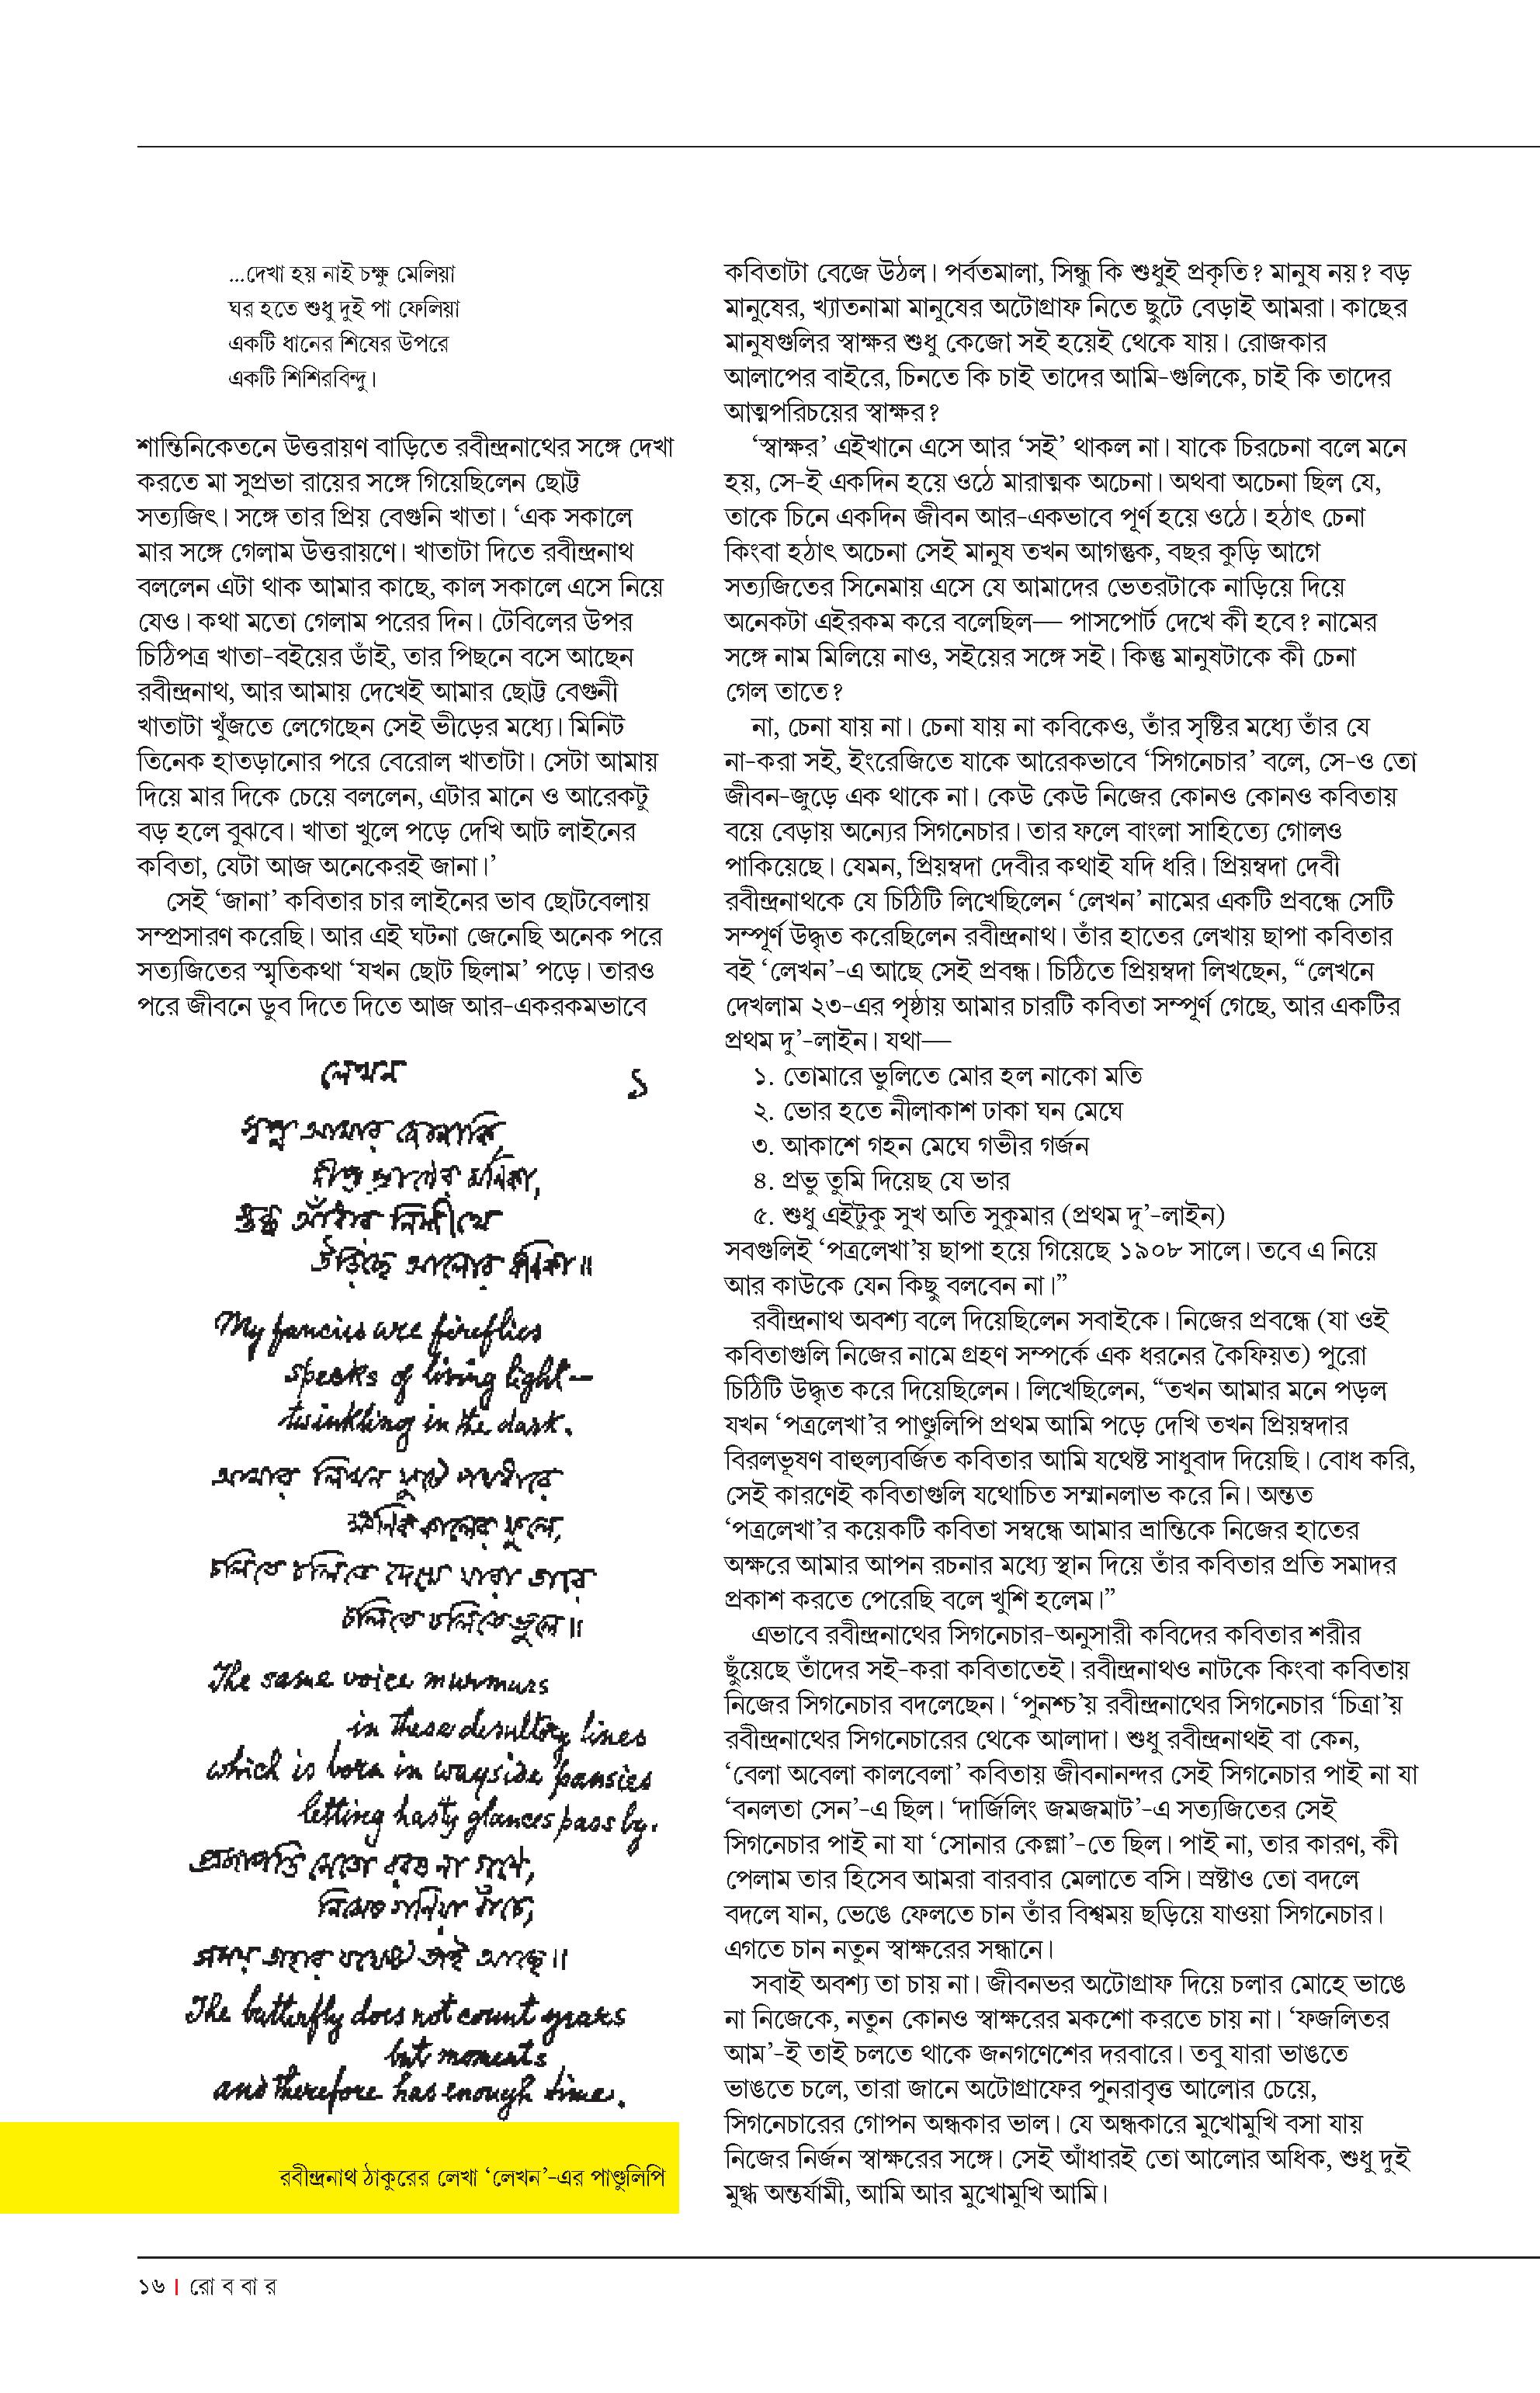 ...দেখা হয় নাই চক্ষু মেলিয়া
ঘর হতে শুধু দুই পা ফেলিয়া
একটি ধানের শিষের উপরে
একটি শিশিরবিন্দু।
শান্তিনিকেতনে উত্তরায়ণ বাড়িতে রবীন্দ্রনাথের সঙ্গে দেখা
করতে মা সুপ্রভা রায়ের সঙ্গে গিয়েছিলেন ছোট্ট
সত্যজিৎ। সঙ্গে তার প্রিয় বেগুনি খাতা। ‘এক সকালে
মার সঙ্গে গেলাম উত্তরায়ণে। খাতাটা দিতে রবীন্দ্রনাথ
বললেন এটা থাক আমার কাছে, কাল সকালে এসে নিয়ে
যেও। কথা মতো গেলাম পরের দিন। টেবিলের উপর
চিঠিপত্র খাতা-বইয়ের ডাঁই, তার পিছনে বসে আছেন
রবীন্দ্রনাথ, আর আমায় দেখেই আমার ছোট্ট বেগুনী
খাতাটা খুঁজতে লেগেছেন সেই ভীড়ের মধ্যে। মিনিট
তিনেক হাতড়ানোর পরে বেরোল খাতাটা। সেটা আমায়
দিয়ে মার দিকে চেয়ে বললেন, এটার মানে ও আরেকটু
বড় হলে বুঝবে। খাতা খুলে পড়ে দেখি আট লাইনের
কবিতা, যেটা আজ অনেকেরই জানা।’
সেই ‘জানা’ কবিতার চার লাইনের ভাব ছোটবেলায়
সম্প্রসারণ করেছি। আর এই ঘটনা জেনেছি অনেক পরে
সত্যজিতের স্মৃতিকথা ‘যখন ছোট ছিলাম’ পড়ে। তারও
পরে জীবনে ডুব দিতে দিতে আজ আর-একরকমভাবে
লেখন
১
স্বপ্ন আমার জোনাকি,
দীপ্ত প্রাণের মণিকা,
স্তব্ধ আঁধার নিশীথে
উড়িছে আলোর কণিকা॥
My fancies are fireflies
specks of living light—
twinkling in the dark.
আমার লিখন ফুটে পথধারে
ক্ষণিক কালের ফুলে,
চলিতে চলিতে দেখে যারা তারে
চলিতে চলিতে ভুলে॥
The same voice murmurs
in these desultory lines
which is born in wayside pansies
letting hasty glances pass by.
প্রজাপতি সেতো বরষ না গণে,
নিমেষ গণিয়া বাঁচে,
সময় তাহার যথেষ্ট তাই আছে॥
The butterfly does not count years
but moments
and therefore has enough time.
রবীন্দ্রনাথ ঠাকুরের লেখা ‘লেখন’-এর পাণ্ডুলিপি
কবিতাটা বেজে উঠল। পর্বতমালা, সিন্ধু কি শুধুই প্রকৃতি? মানুষ নয়? বড়
মানুষের, খ্যাতনামা মানুষের অটোগ্রাফ নিতে ছুটে বেড়াই আমরা। কাছের
মানুষগুলির স্বাক্ষর শুধু কেজো সই হয়েই থেকে যায়। রোজকার
আলাপের বাইরে, চিনতে কি চাই তাদের আমি-গুলিকে, চাই কি তাদের
আত্মপরিচয়ের স্বাক্ষর?
‘স্বাক্ষর’ এইখানে এসে আর ‘সই’ থাকল না। যাকে চিরচেনা বলে মনে
হয়, সে-ই একদিন হয়ে ওঠে মারাত্মক অচেনা। অথবা অচেনা ছিল যে,
তাকে চিনে একদিন জীবন আর-একভাবে পূর্ণ হয়ে ওঠে। হঠাৎ চেনা
কিংবা হঠাৎ অচেনা সেই মানুষ তখন আগন্তুক, বছর কুড়ি আগে
সত্যজিতের সিনেমায় এসে যে আমাদের ভেতরটাকে নাড়িয়ে দিয়ে
অনেকটা এইরকম করে বলেছিল— পাসপোর্ট দেখে কী হবে? নামের
সঙ্গে নাম মিলিয়ে নাও, সইয়ের সঙ্গে সই। কিন্তু মানুষটাকে কী চেনা
গেল তাতে?
না, চেনা যায় না। চেনা যায় না কবিকেও, তাঁর সৃষ্টির মধ্যে তাঁর যে
না-করা সই, ইংরেজিতে যাকে আরেকভাবে ‘সিগনেচার’ বলে, সে-ও তো
জীবন-জুড়ে এক থাকে না। কেউ কেউ নিজের কোনও কোনও কবিতায়
বয়ে বেড়ায় অন্যের সিগনেচার। তার ফলে বাংলা সাহিত্যে গোলও
পাকিয়েছে। যেমন, প্রিয়ম্বদা দেবীর কথাই যদি ধরি। প্রিয়ম্বদা দেবী
রবীন্দ্রনাথকে যে চিঠিটি লিখেছিলেন ‘লেখন’ নামের একটি প্রবন্ধে সেটি
সম্পূর্ণ উদ্ধৃত করেছিলেন রবীন্দ্রনাথ। তাঁর হাতের লেখায় ছাপা কবিতার
বই ‘লেখন’-এ আছে সেই প্রবন্ধ। চিঠিতে প্রিয়ম্বদা লিখছেন, “লেখনে
দেখলাম ২৩-এর পৃষ্ঠায় আমার চারটি কবিতা সম্পূর্ণ গেছে, আর একটির
প্রথম দু’-লাইন। যথা—
১. তোমারে ভুলিতে মোর হল নাকো মতি
২. ভোর হতে নীলাকাশ ঢাকা ঘন মেঘে
৩. আকাশে গহন মেঘে গভীর গর্জন
৪. প্রভু তুমি দিয়েছ যে ভার
৫. শুধু এইটুকু সুখ অতি সুকুমার (প্রথম দু’-লাইন)
সবগুলিই ‘পত্রলেখা’য় ছাপা হয়ে গিয়েছে ১৯০৮ সালে। তবে এ নিয়ে
আর কাউকে যেন কিছু বলবেন না।”
রবীন্দ্রনাথ অবশ্য বলে দিয়েছিলেন সবাইকে। নিজের প্রবন্ধে (যা ওই
কবিতাগুলি নিজের নামে গ্রহণ সম্পর্কে এক ধরনের কৈফিয়ত) পুরো
চিঠিটি উদ্ধৃত করে দিয়েছিলেন। লিখেছিলেন, “তখন আমার মনে পড়ল
যখন ‘পত্রলেখা’র পাণ্ডুলিপি প্রথম আমি পড়ে দেখি তখন প্রিয়ম্বদার
বিরলভূষণ বাহুল্যবর্জিত কবিতার আমি যথেষ্ট সাধুবাদ দিয়েছি। বোধ করি,
সেই কারণেই কবিতাগুলি যথোচিত সম্মানলাভ করে নি। অন্তত
‘পত্রলেখা’র কয়েকটি কবিতা সম্বন্ধে আমার ভ্রান্তিকে নিজের হাতের
অক্ষরে আমার আপন রচনার মধ্যে স্থান দিয়ে তাঁর কবিতার প্রতি সমাদর
প্রকাশ করতে পেরেছি বলে খুশি হলেম।”
এভাবে রবীন্দ্রনাথের সিগনেচার-অনুসারী কবিদের কবিতার শরীর
ছুঁয়েছে তাঁদের সই-করা কবিতাতেই। রবীন্দ্রনাথও নাটকে কিংবা কবিতায়
নিজের সিগনেচার বদলেছেন। ‘পুনশ্চ’য় রবীন্দ্রনাথের সিগনেচার ‘চিত্রা’য়
রবীন্দ্রনাথের সিগনেচারের থেকে আলাদা। শুধু রবীন্দ্রনাথই বা কেন,
‘বেলা অবেলা কালবেলা’ কবিতায় জীবনানন্দর সেই সিগনেচার পাই না যা
‘বনলতা সেন’-এ ছিল। ‘দার্জিলিং জমজমাট’-এ সত্যজিতের সেই
সিগনেচার পাই না যা ‘সোনার কেল্লা’-তে ছিল। পাই না, তার কারণ, কী
পেলাম তার হিসেব আমরা বারবার মেলাতে বসি। স্রষ্টাও তো বদলে
বদলে যান, ভেঙে ফেলতে চান তাঁর বিশ্বময় ছড়িয়ে যাওয়া সিগনেচার।
এগতে চান নতুন স্বাক্ষরের সন্ধানে।
সবাই অবশ্য তা চায় না। জীবনভর অটোগ্রাফ দিয়ে চলার মোহে ভাঙে
না নিজেকে, নতুন কোনও স্বাক্ষরের মকশো করতে চায় না। ‘ফজলিতর
আম’-ই তাই চলতে থাকে জনগণেশের দরবারে। তবু যারা ভাঙতে
ভাঙতে চলে, তারা জানে অটোগ্রাফের পুনরাবৃত্ত আলোর চেয়ে,
সিগনেচারের গোপন অন্ধকার ভাল। যে অন্ধকারে মুখোমুখি বসা যায়
নিজের নির্জন স্বাক্ষরের সঙ্গে। সেই আঁধারই তো আলোর অধিক, শুধু দুই
মুগ্ধ অন্তর্যামী, আমি আর মুখোমুখি আমি।
১৬ | রো ব বা র